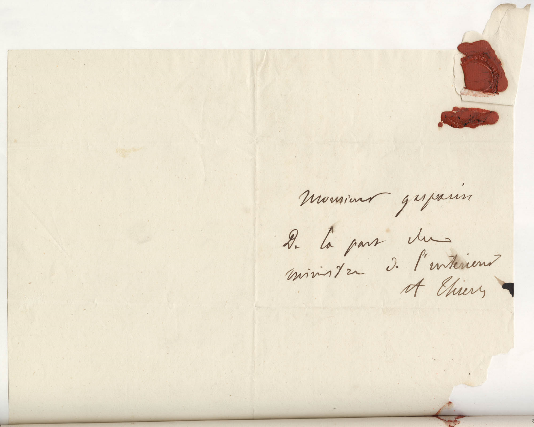 Monsieur gasparin
De la part du
ministre de l'interieur
A Thiers